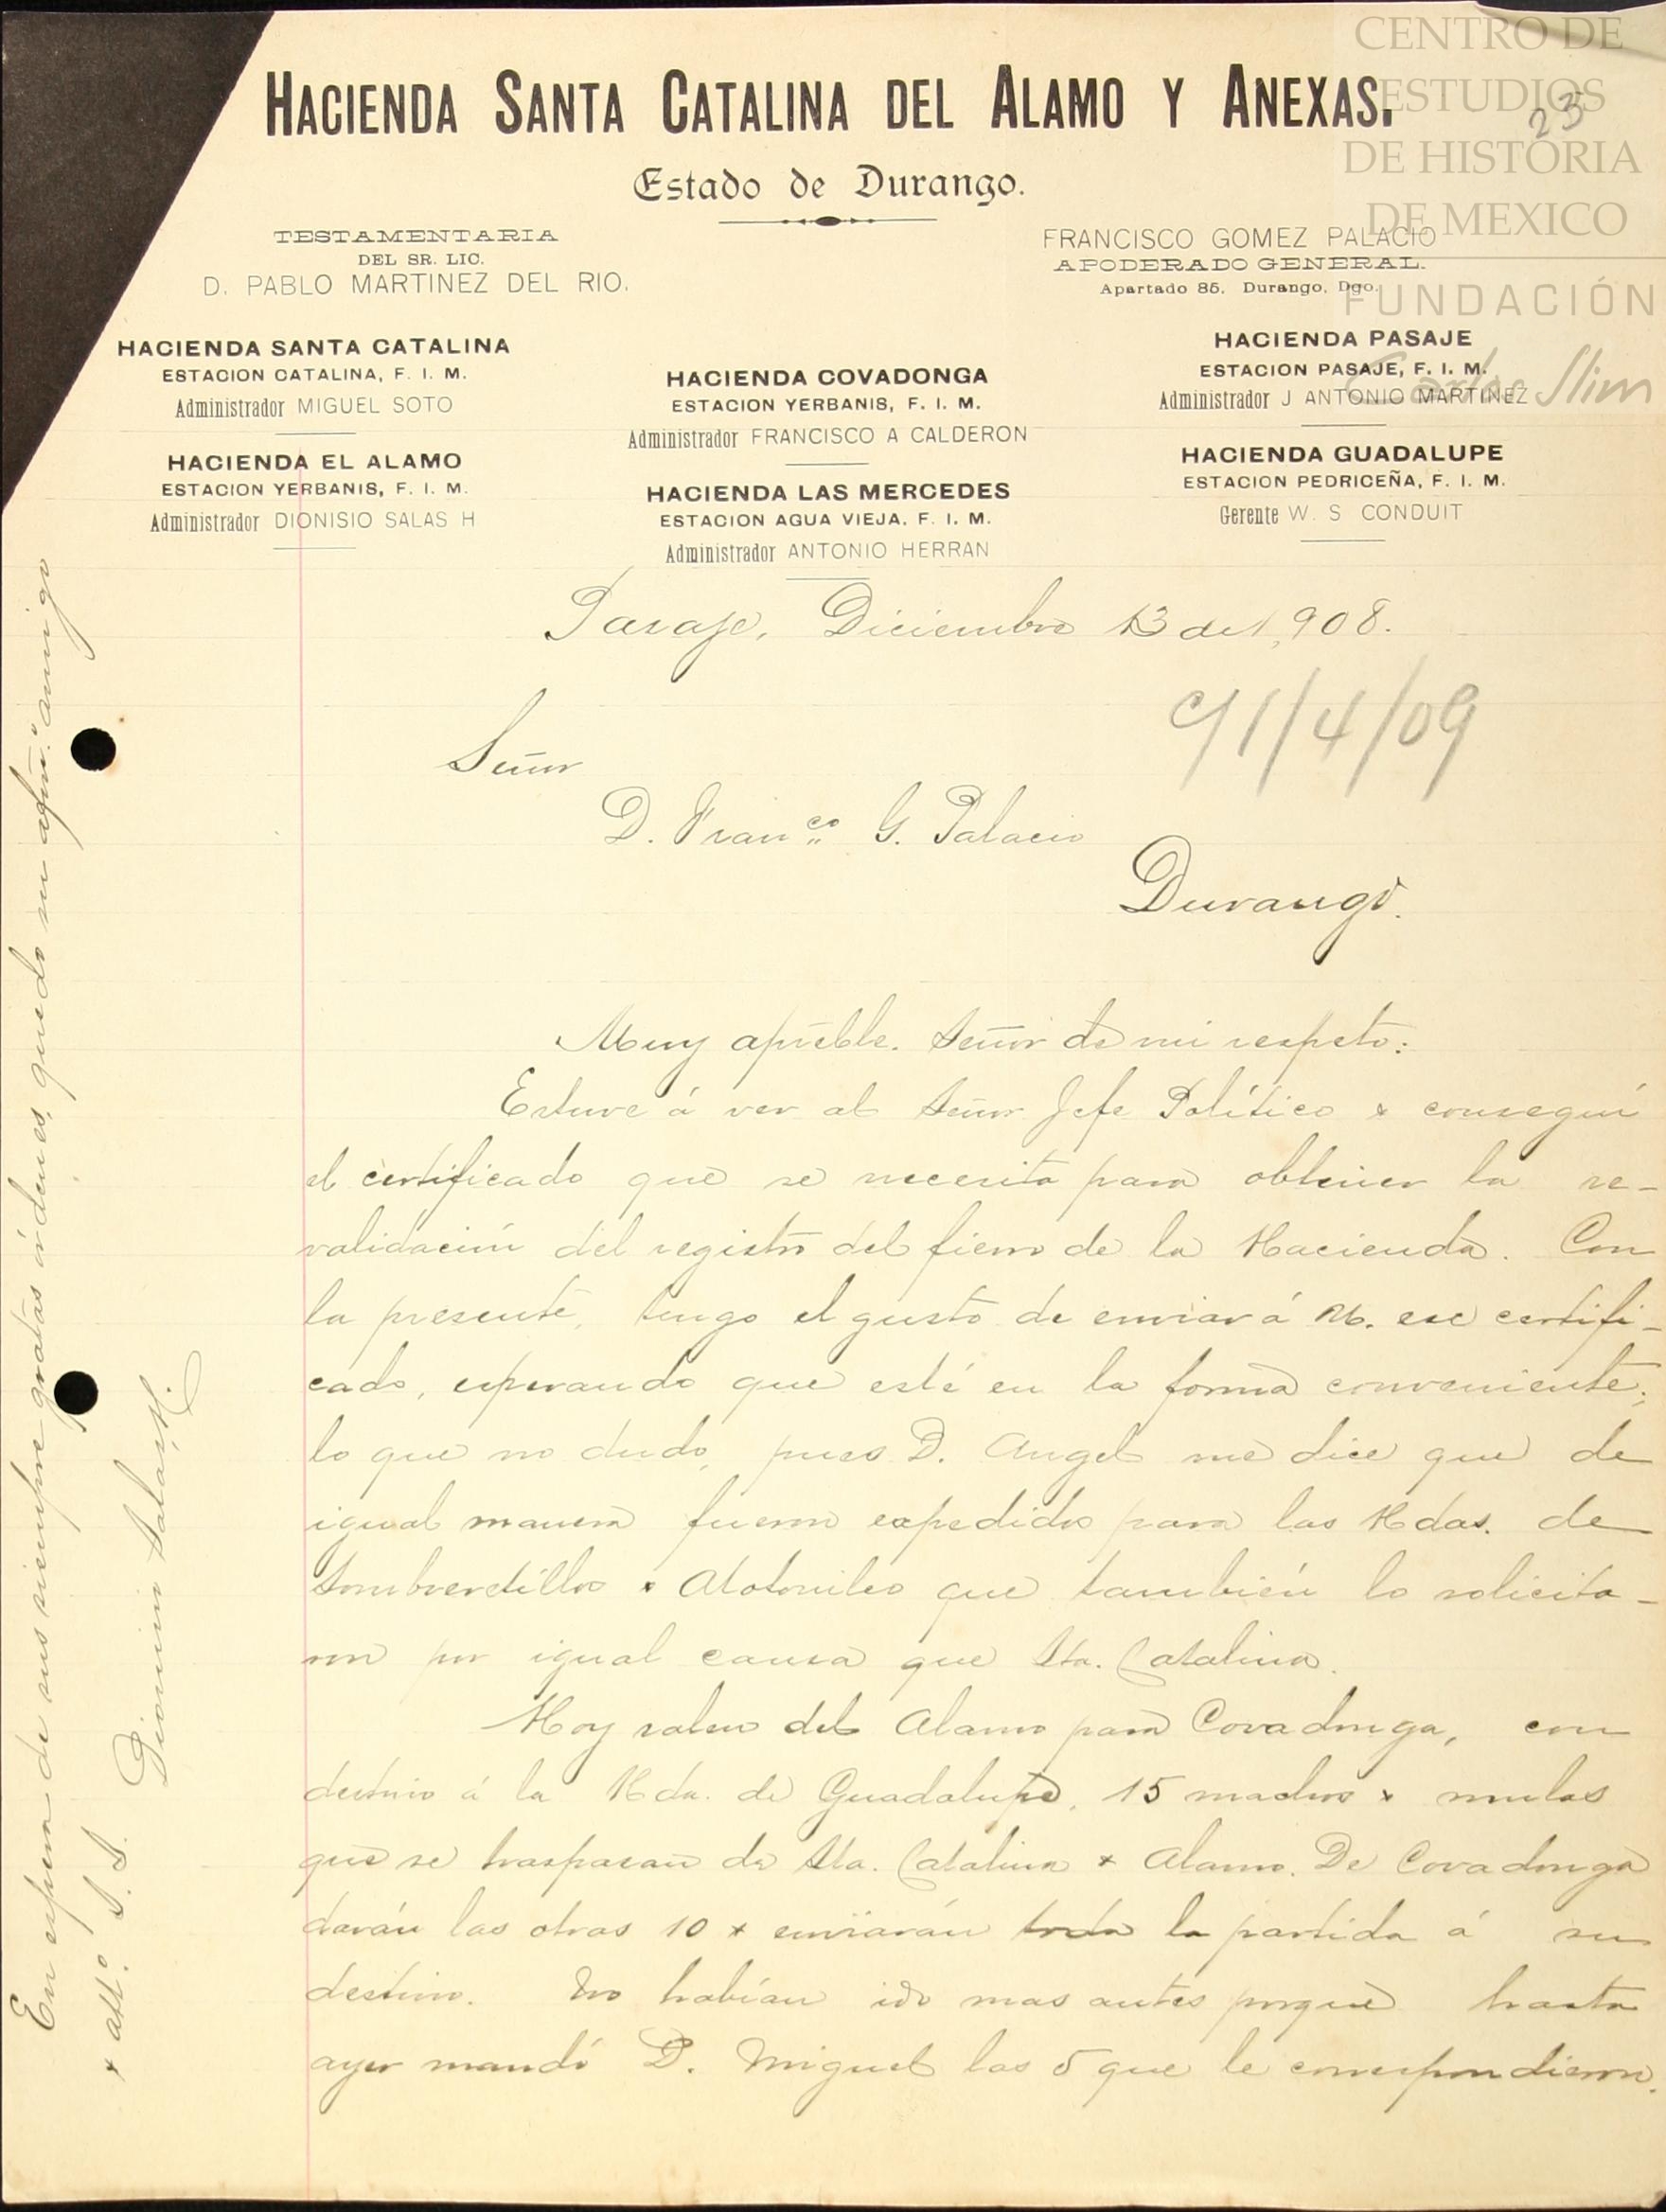 HACIENDA SANTA CATALINA DEL ALAMO Y ANEXAS.
Estado de Durango.
TESTAMENTARIA
DEL SR. LIC.
D. PABLO MARTINEZ DEL RIO.
FRANCISCO GOMEZ PALACIO
APODERADO GENERAL.
Apartado 85. Durango, Dgo.
HACIENDA SANTA CATALINA
ESTACION CATALINA, F. I. M.
Administrador MIGUEL SOTO
HACIENDA EL ALAMO
ESTACION YERBANIS, F. I. M.
Administrador DIONISIO SALAS H
HACIENDA COVADONGA
ESTACION YERBANIS, F. I. M.
Administrador FRANCISCO A CALDERON
HACIENDA LAS MERCEDES
ESTACION AGUA VIEJA. F. I. M.
Administrador ANTONIO HERRAN
HACIENDA PASAJE
ESTACION PASAJE, F. I. M.
Administrador J ANTONIO MARTINEZ
HACIENDA GUADALUPE
ESTACION PEDRICEÑA, F. I. M.
Gerente W. S CONDUIT
CENTRO DE
ESTUDIOS
DE HISTORIA
DE MEXICO
FUNDACIÓN
Carlos Slim
23
Pasaje, Diciembre 13 de 1,908.
/1/4/09
Señor
D. Franco. G. Palacio
Durango.
Muy apreble. Señor de mi respeto:
Estuve á ver al Señor Jefe Político x conseguí
el certificado que se necesita para obtener la re-
validación del registro del fierro de la Hacienda. Con
la presente, tengo el gusto de enviar á U. ese certifi-
cado, esperando que esté en la forma conveniente;
lo que no dudo, pues D. Angel me dice que de
igual manera fueron expedidos para las Hdas. de
Sombreretillo x Atotonilco que también lo solicita-
ron por igual causa que Sta. Catalina.
Hoy salen del Alamo para Covadonga, con
destino á la Hda. de Guadalupe, 15 machos x mulas
que se traspasan de Sta. Catalina x Alamo. De Covadonga
darán las otras 10 x enviarán toda la partida á su
destino. No habían ido mas antes porque hasta
ayer mandó D. Miguel las 5 que le correspondieron.
En espera de sus siempre gratas órdenes, quedo su afmo. amigo
x atto. S. S.
Dionisio Salas H.